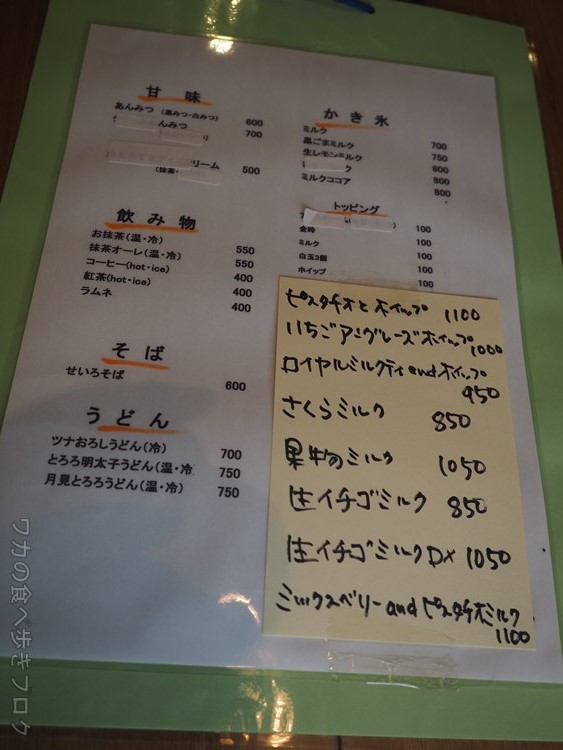 甘 味
あんみつ (黒みつ・白みつ) 600
んみつ 700
リーム 500
(抹茶・
飲 み 物
お抹茶(温・冷) 550
抹茶オーレ(温・冷) 550
コーヒー(hot・ice) 400
紅茶(hot・ice) 400
ラムネ 400
そ ば
せいろそば 600
う ど ん
ツナおろしうどん(冷) 700
とろろ明太子うどん(温・冷 750
月見とろろうどん(温・冷) 750
か き 氷
ミルク 700
黒ごまミルク 750
生レモンミルク 800
ク 800
ミルクココア 800
トッピング
100
金時 100
ミルク 100
白玉3個 100
ホイップ 100
ピスタチオとホイップ 1100
いちごアングレーズホイップ 1000
ロイヤルミルクティandホイップ 950
さくらミルク 850
果物ミルク 1050
生イチゴミルク 850
生イチゴミルクDX 1050
ミックスベリーandピスタチオミルク 1100
ワカの食べ歩きブログ